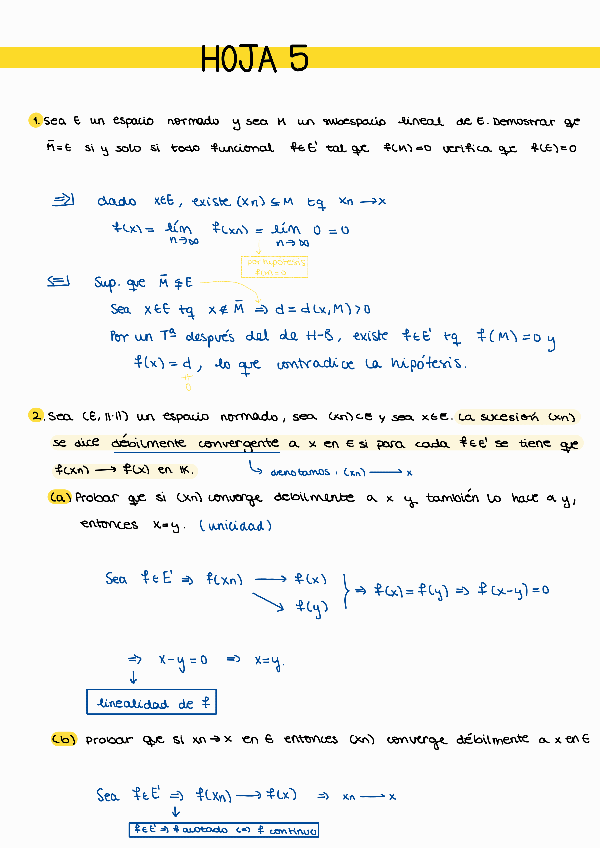 HOJA 5
1. Sea E un espacio normado y sea M un subespacio lineal de E. Demostrar que
M̄=E si y solo si todo funcional f∈E' tal que f(M)=0 verifica que f(E)=0
⇒| dado x∈E, existe (xn)⊆M tq xn→x
f(x) = lím n→∞ f(xn) = lím n→∞ 0 = 0
por hipótesis
f(M)=0
⇐| Sup. que M̄⊊E
Sea x∈E tq x∉M̄ ⇒ d=d(x,M)>0
Por un Tª después del de H-B, existe f∈E' tq f(M)=0 y
f(x)=d, lo que contradice la hipótesis.
0
2. Sea (E,||·||) un espacio normado, sea (xn)⊂E y sea x∈E. La sucesión (xn)
se dice débilmente convergente a x en E si para cada f∈E' se tiene que
f(xn)→f(x) en K. ↳ denotamos: (xn)⟶x
(a) Probar que si (xn) converge débilmente a x y también lo hace a y,
entonces x=y. (unicidad)
Sea f∈E' ⇒ f(xn) ⟶ f(x)
↘ f(y) } ⇒ f(x)=f(y) ⇒ f(x-y)=0
⇒ x-y=0 ⇒ x=y.
↓
linealidad de f
(b) Probar que si xn→x en E entonces (xn) converge débilmente a x en E
Sea f∈E' ⇒ f(xn)⟶f(x) ⇒ xn⟶x
↓
f∈E' ⇒ f acotado ⇔ f continuo